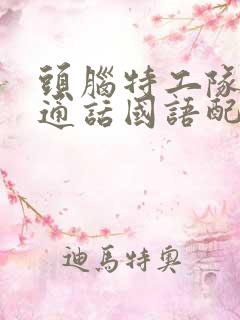 頭腦特工隊
通話國語配
迪馬特奧